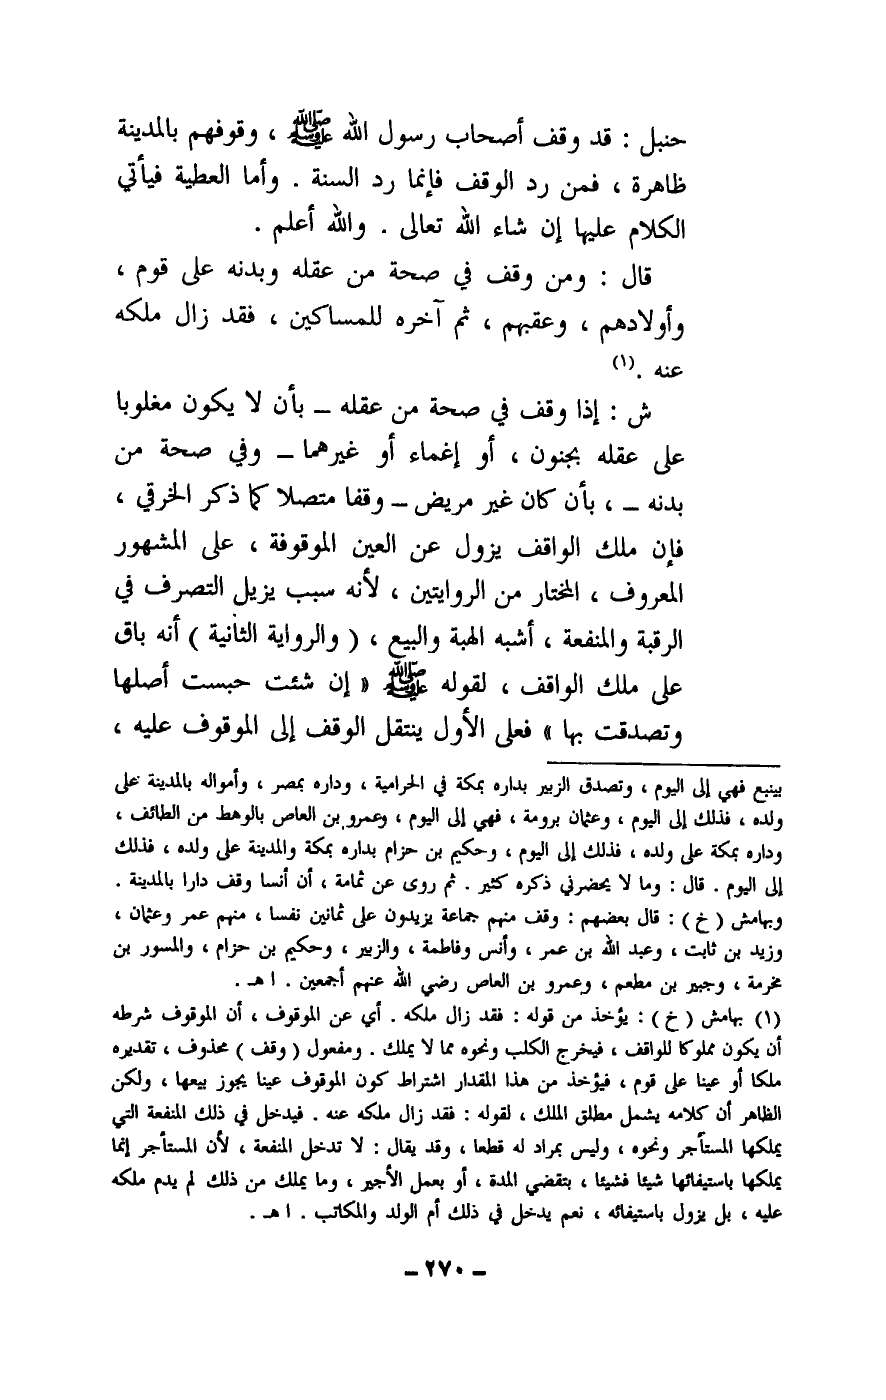 حنبل : قد وقف أصحاب رسول الله ﷺ ، وقوفهم بالمدينة
ظاهرة ، فمن رد الوقف فإنما رد السنة . وأما العطية فيأتي
الكلام عليها إن شاء الله تعالى . والله أعلم .
قال : ومن وقف في صحة من عقله وبدنه على قوم ،
وأولادهم ، وعقبهم ، ثم آخره للمساكين ، فقد زال ملكه
عنه .(١)
ش : إذا وقف في صحة من عقله ــ بأن لا يكون مغلوبا
على عقله بجنون ، أو إغماء أو غيرهما ــ وفي صحة من
بدنه ــ ، بأن كان غير مريض ــ وقفا متصلا كما ذكر الخرقي ،
فإن ملك الواقف يزول عن العين الموقوفة ، على المشهور
المعروف ، المختار من الروايتين ، لأنه سبب يزيل التصرف في
الرقبة والمنفعة ، أشبه الهبة والبيع ، ( والرواية الثانية ) أنه باق
على ملك الواقف ، لقوله ﷺ « إن شئت حبست أصلها
وتصدقت بها » فعلى الأول ينتقل الوقف إلى الموقوف عليه ،
بينبع فهي إلى اليوم ، وتصدق الزبير بداره بمكة في الحرامية ، وداره بمصر ، وأمواله بالمدينة على
ولده ، فذلك إلى اليوم ، وعثمان برومة ، فهي إلى اليوم ، وعمرو بن العاص بالوهط من الطائف ،
وداره بمكة على ولده ، فذلك إلى اليوم ، وحكيم بن حزام بداره بمكة والمدينة على ولده ، فذلك
إلى اليوم . قال : وما لا يحضرني ذكره كثير . ثم روى عن ثمامة ، أن أنسا وقف دارا بالمدينة .
وبهامش ( خ ) : قال بعضهم : وقف منهم جماعة يزيدون على ثمانين نفسا ، منهم عمر وعثمان ،
وزيد بن ثابت ، وعبد الله بن عمر ، وأنس وفاطمة ، والزبير ، وحكيم بن حزام ، والمسور بن
مخرمة ، وجبير بن مطعم ، وعمرو بن العاص رضي الله عنهم أجمعين . ا هـ .
(١) بهامش ( خ ) : يؤخذ من قوله : فقد زال ملكه . أي عن الموقوف ، أن الموقوف شرطه
أن يكون مملوكا للواقف ، فيخرج الكلب ونحوه مما لا يملك . ومفعول ( وقف ) محذوف ، تقديره
ملكا أو عينا على قوم ، فيؤخذ من هذا المقدار اشتراط كون الموقوف عينا يجوز بيعها ، ولكن
الظاهر أن كلامه يشمل مطلق الملك ، لقوله : فقد زال ملكه عنه . فيدخل في ذلك المنفعة التي
يملكها المستأجر ونحوه ، وليس بمراد له قطعا ، وقد يقال : لا تدخل المنفعة ، لأن المستأجر إنما
يملكها باستيفائها شيئا فشيئا ، بتقضي المدة ، أو بعمل الأجير ، وما يملك من ذلك لم يدم ملكه
عليه ، بل يزول باستيفائه ، نعم يدخل في ذلك أم الولد والمكاتب . ا هـ .
ــ ٢٧٠ ــ